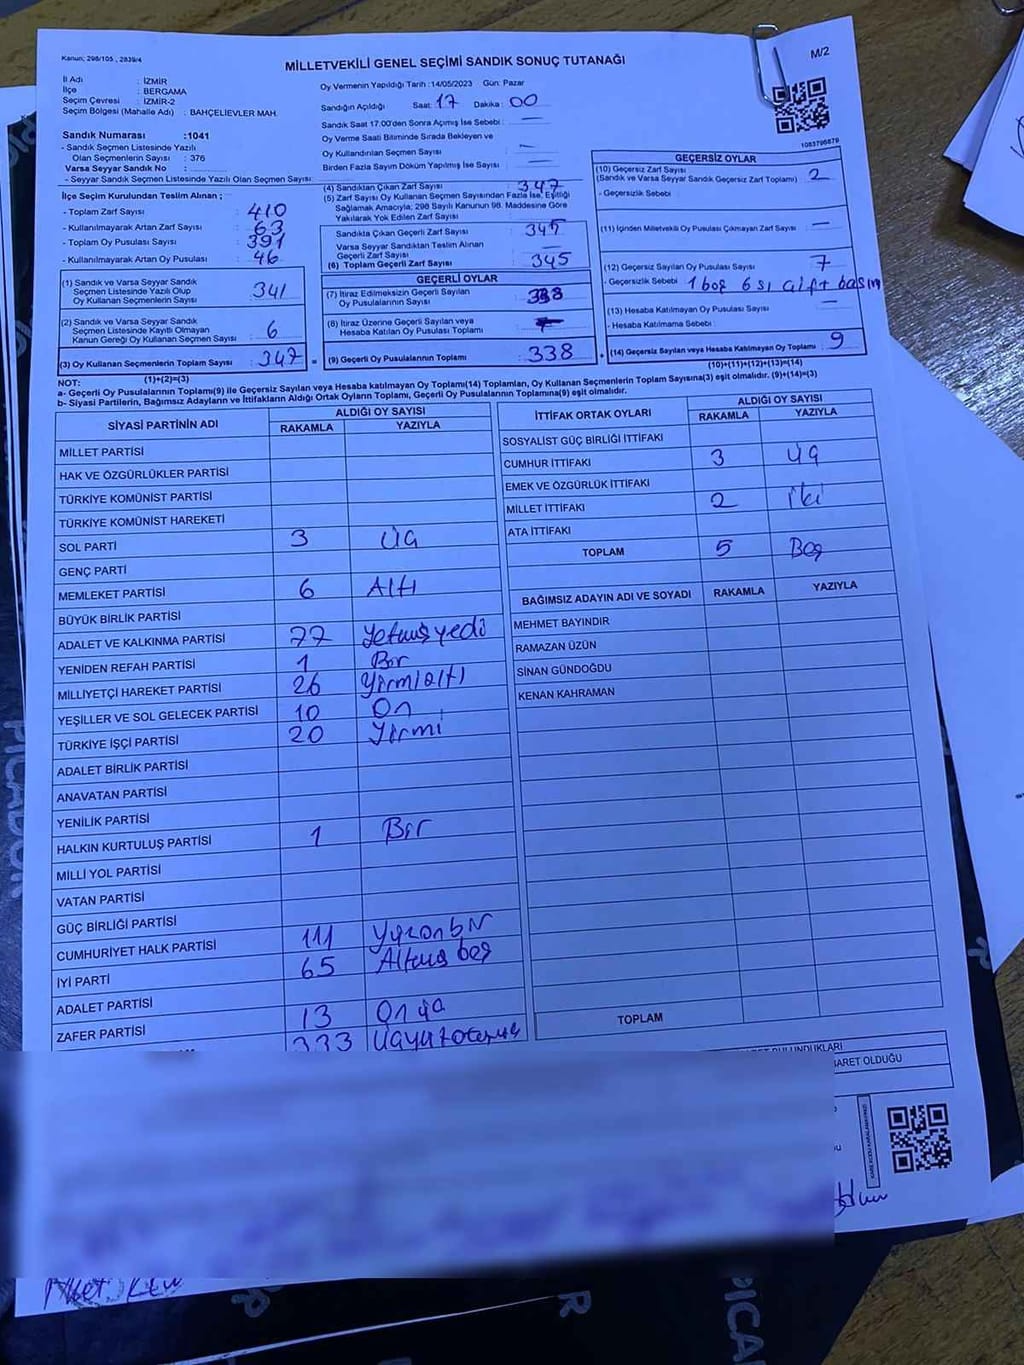 Kanun; 298/105 , 2839/4
MİLLETVEKİLİ GENEL SEÇİMİ SANDIK SONUÇ TUTANAĞI
M/2
İl Adı : İZMİR
İlçe : BERGAMA
Seçim Çevresi : İZMİR-2
Seçim Bölgesi (Mahalle Adı) : BAHÇELİEVLER MAH.
Sandık Numarası :1041
- Sandık Seçmen Listesinde Yazılı
Olan Seçmenlerin Sayısı : 376
Varsa Seyyar Sandık No :
- Seyyar Sandık Seçmen Listesinde Yazılı Olan Seçmen Sayısı:
Oy Vermenin Yapıldığı Tarih :14/05/2023 Gün: Pazar
Sandığın Açıldığı Saat: 17 Dakika : 00
Sandık Saat 17:00'den Sonra Açımış İse Sebebi : —
Oy Verme Saati Bitiminde Sırada Bekleyen ve
Oy Kullandırılan Seçmen Sayısı : —
Birden Fazla Sayım Döküm Yapılmış İse Sayısı : —
1083796879
İlçe Seçim Kurulundan Teslim Alınan ;
- Toplam Zarf Sayısı : 410
- Kullanılmayarak Artan Zarf Sayısı : 63
- Toplam Oy Pusulası Sayısı : 391
- Kullanılmayarak Artan Oy Pusulası : 46
(1) Sandık ve Varsa Seyyar Sandık
Seçmen Listesinde Yazılı Olup
Oy Kullanan Seçmenlerin Sayısı : 341
(2) Sandık ve Varsa Seyyar Sandık
Seçmen Listesinde Kayıtlı Olmayan
Kanun Gereği Oy Kullanan Seçmen Sayısı : 6
(3) Oy Kullanan Seçmenlerin Toplam Sayısı : 347
(1)+(2)=(3)
(4) Sandıktan Çıkan Zarf Sayısı : 347
(5) Zarf Sayısı Oy Kullanan Seçmen Sayısından Fazla İse, Eşitliği
Sağlamak Amacıyla; 298 Sayılı Kanunun 98. Maddesine Göre
Yakılarak Yok Edilen Zarf Sayısı : —
Sandıkta Çıkan Geçerli Zarf Sayısı : 345
Varsa Seyyar Sandıktan Teslim Alınan
Geçerli Zarf Sayısı : —
(6) Toplam Geçerli Zarf Sayısı : 345
GEÇERLİ OYLAR
(7) İtiraz Edilmeksizin Geçerli Sayılan
Oy Pusulalarının Sayısı : 338
(8) İtiraz Üzerine Geçerli Sayılan veya
Hesaba Katılan Oy Pusulası Toplamı :
= (9) Geçerli Oy Pusulalarının Toplamı : 338
GEÇERSİZ OYLAR
(10) Geçersiz Zarf Sayısı
(Sandık ve Varsa Seyyar Sandık Geçersiz Zarf Toplamı) : 2
- Geçersizlik Sebebi :
(11) İçinden Milletvekili Oy Pusulası Çıkmayan Zarf Sayısı : —
(12) Geçersiz Sayılan Oy Pusulası Sayısı : 7
- Geçersizlik Sebebi : 1 boş 6 sı çift basım
(13) Hesaba Katılmayan Oy Pusulası Sayısı : —
- Hesaba Katılmama Sebebi :
+ (14) Geçersiz Sayılan veya Hesaba Katılmayan Oy Toplamı : 9
(10)+(11)+(12)+(13)=(14)
NOT:
a- Geçerli Oy Pusulalarının Toplamı(9) ile Geçersiz Sayılan veya Hesaba katılmayan Oy Toplamı(14) Toplamları, Oy Kullanan Seçmenlerin Toplam Sayısına(3) eşit olmalıdır. (9)+(14)=(3)
b- Siyasi Partilerin, Bağımsız Adayların ve İttifakların Aldığı Ortak Oyların Toplamı, Geçerli Oy Pusulalarının Toplamına(9) eşit olmalıdır.
SİYASİ PARTİNİN ADI ALDIĞI OY SAYISI
RAKAMLA YAZIYLA
MİLLET PARTİSİ
HAK VE ÖZGÜRLÜKLER PARTİSİ
TÜRKİYE KOMÜNİST PARTİSİ
TÜRKİYE KOMÜNİST HAREKETİ
SOL PARTİ 3 üç
GENÇ PARTİ
MEMLEKET PARTİSİ 6 Altı
BÜYÜK BİRLİK PARTİSİ
ADALET VE KALKINMA PARTİSİ 77 Yetmiş yedi
YENİDEN REFAH PARTİSİ 1 Bir
MİLLİYETÇİ HAREKET PARTİSİ 26 Yirmi altı
YEŞİLLER VE SOL GELECEK PARTİSİ 10 On
TÜRKİYE İŞÇİ PARTİSİ 20 Yirmi
ADALET BİRLİK PARTİSİ
ANAVATAN PARTİSİ
YENİLİK PARTİSİ
HALKIN KURTULUŞ PARTİSİ 1 Bir
MİLLİ YOL PARTİSİ
VATAN PARTİSİ
GÜÇ BİRLİĞİ PARTİSİ
CUMHURİYET HALK PARTİSİ 111 Yüzonbir
İYİ PARTİ 65 Altmış beş
ADALET PARTİSİ
ZAFER PARTİSİ 13 On üç
333 üçyüzotuzüç
İTTİFAK ORTAK OYLARI ALDIĞI OY SAYISI
RAKAMLA YAZIYLA
SOSYALİST GÜÇ BİRLİĞİ İTTİFAKI
CUMHUR İTTİFAKI 3 üç
EMEK VE ÖZGÜRLÜK İTTİFAKI
MİLLET İTTİFAKI 2 iki
ATA İTTİFAKI
TOPLAM 5 Beş
BAĞIMSIZ ADAYIN ADI VE SOYADI RAKAMLA YAZIYLA
MEHMET BAYINDIR
RAMAZAN ÜZÜN
SİNAN GÜNDOĞDU
KENAN KAHRAMAN
TOPLAM
BULUNDUKLARI
İBARET OLDUĞU
PICADOR